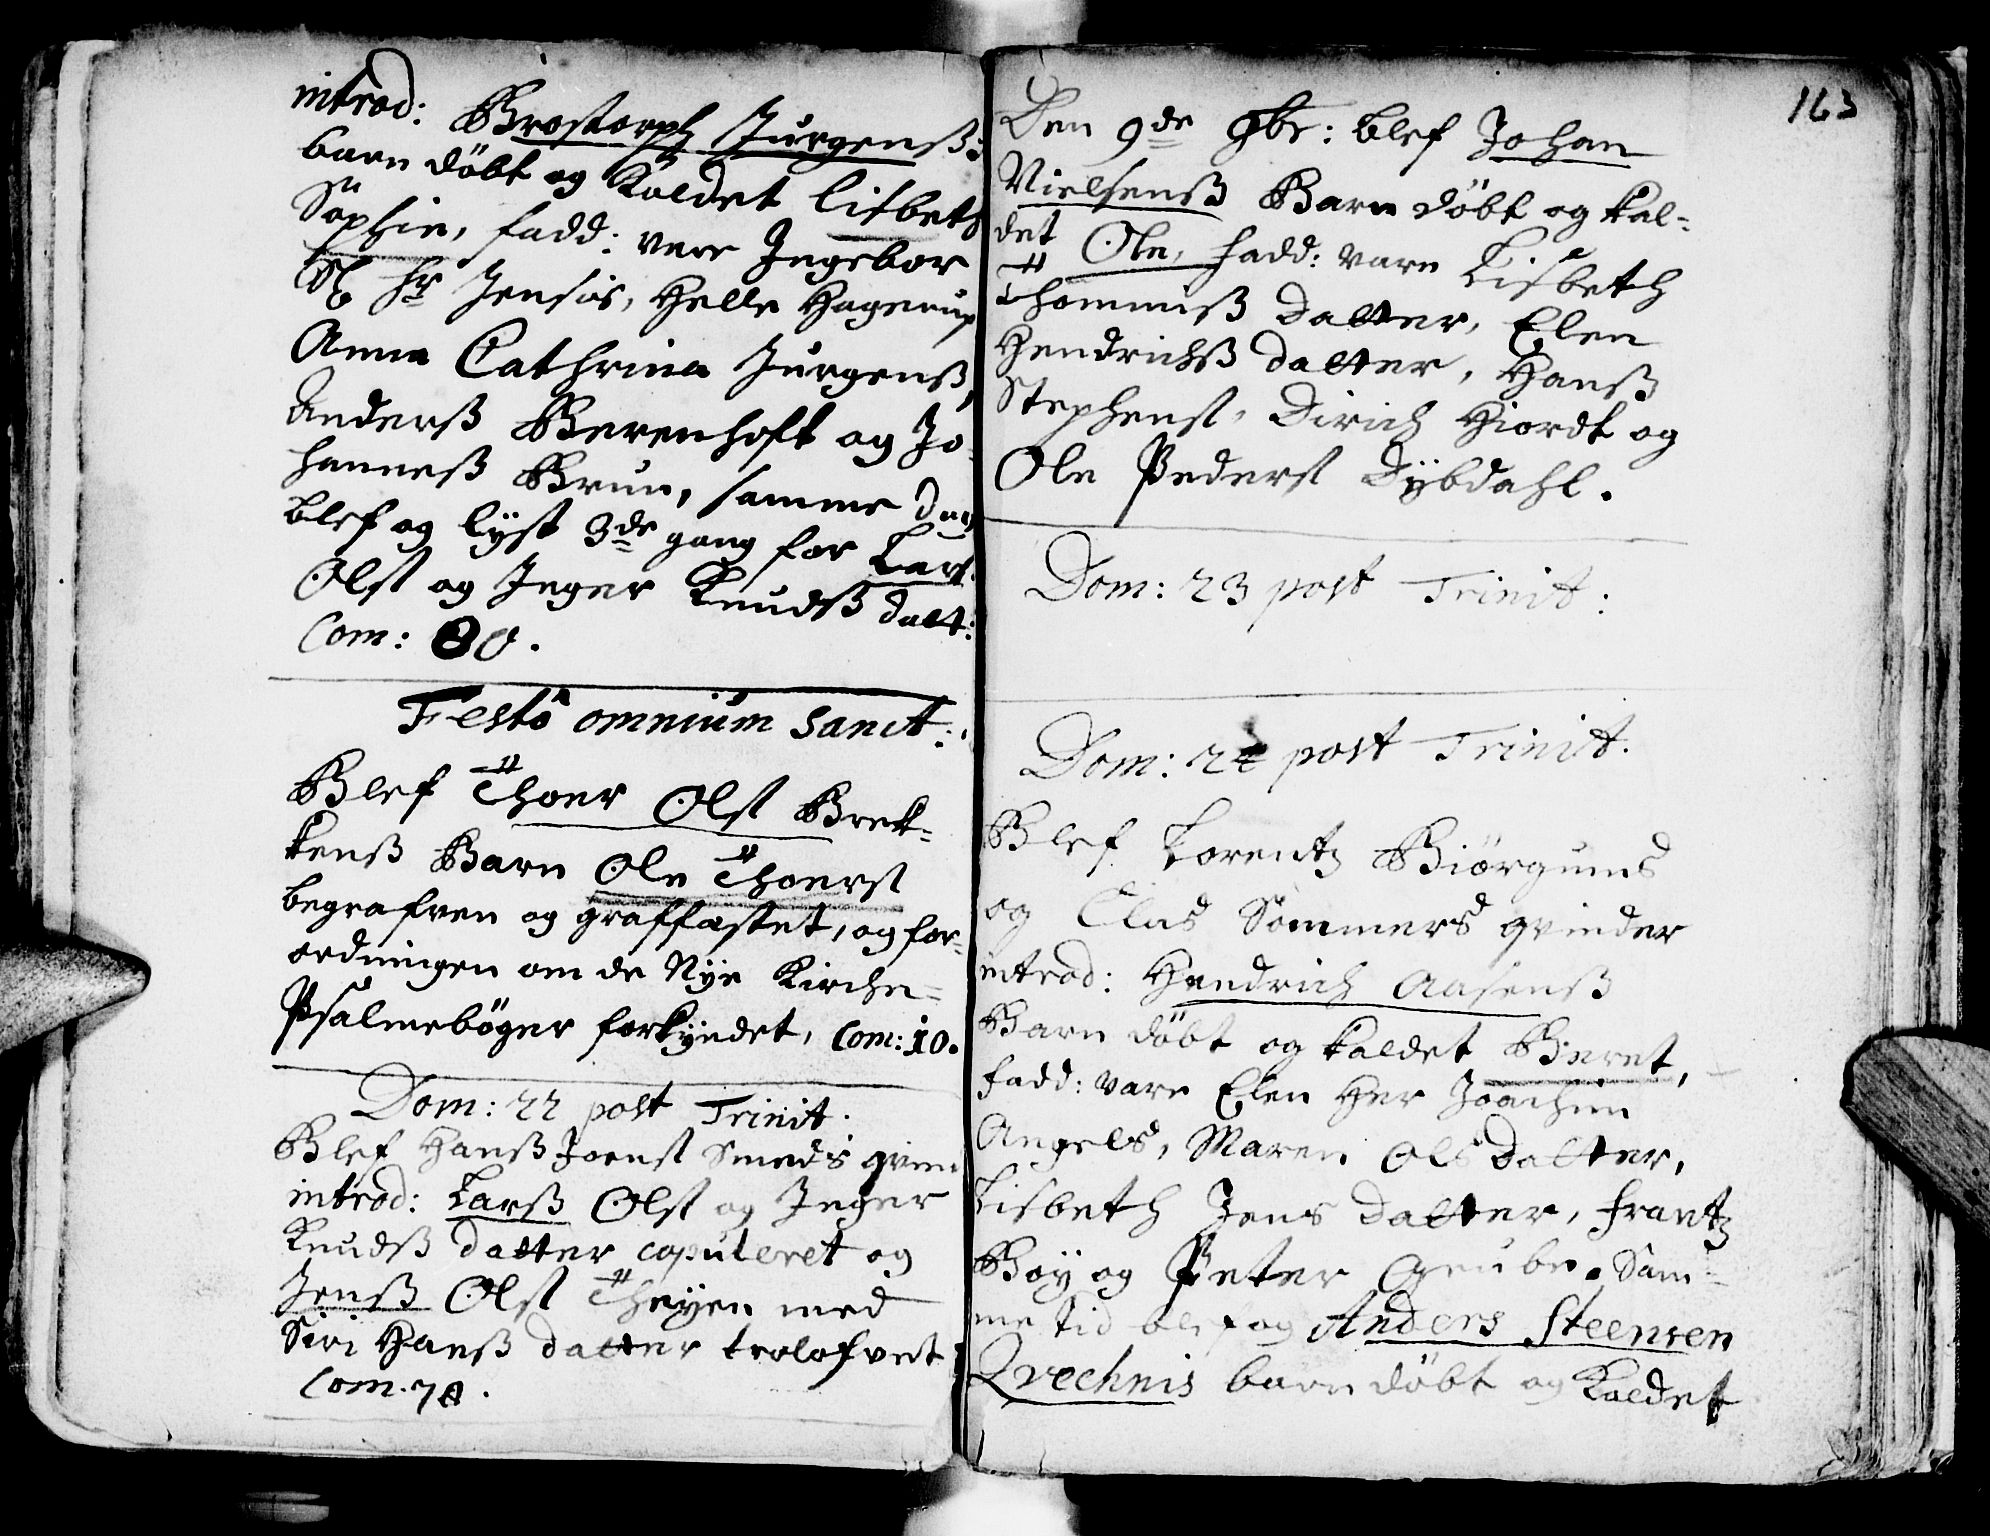 introd: Brostorph Jurgenß
barn döbt og Kaldet Lisbeth
Sophie, fadd: vare Ingebor
Sl hr Jensis, Helle Hagerup
Anna Cathrina Jurgenß,
Anderß Berenhoft og Jo-
hanneß Brun, samme dag
blef og lÿst 3de gang for Lars
Olsst og Inger Knudß datt:
Com: 80.
Festo omnium Sanct:
Blef Thoer Olsst Brek-
kenß Barn Ole Thoersst
begrafven og graffæstet, og for-
ordningen om de Nÿe Kirche-
Psalmebøger forkÿndet, Com: 10.
Dom: 22 post Trinit.
Blef Hanß Joensst Smeds qvin
introd: Larß Olsst og Inger
Knudß datter copuleret og
Jenß Olsst Theÿen med
Siri Hanß datter trolofvet
Com. 70.
163
Den 9de 9br: blef Johan
Nielsenß Barn döbt og kal-
det Ole, fadd: vare Lisbeth
Thommiß datter, Elen
Hendrichß datter, Hanß
Stephensst, Dirich Hiordt og
Ole Pedersst Dÿbdahl.
Dom: 23 post Trinit:
Dom: 24 post Trinit.
Blef Lorentz Biörgums
og Clas Sommers qvinder
introd: Hendrich Aasenß
Barn döbt og kaldet Beret,
fadd: vare Elen Her Joachim
Angels, Maren Ols datter,
Lisbeth Jens datter, Frantz
Boÿ og Peter Grube. Sam-
me tid blef og Anders Steensen
Qvechnis barn döbt og Kaldet